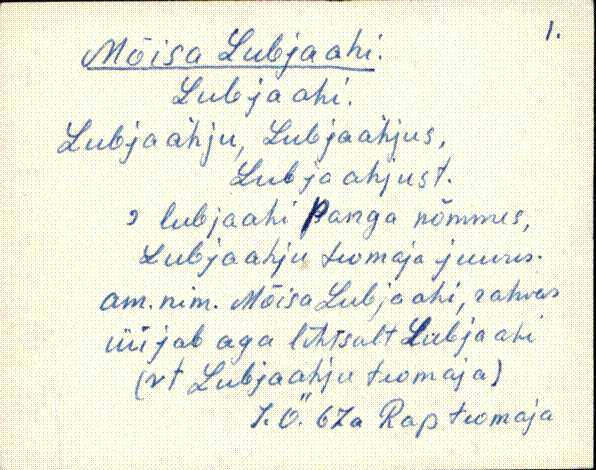 1.
Mõisa Lubjaahi.
Lubjaahi.
Lubjaahju, Lubjaahjus,
Lubjaahjust.
lubjaahi Panga nõmmes,
Lubjaahju teomaja juures.
am. nim. Mõisa Lubjaahi, rahvas
üüjab aga lihtsalt Lubjaahi
(vt Lubjaahju teomaja)
67a Rap teomaja